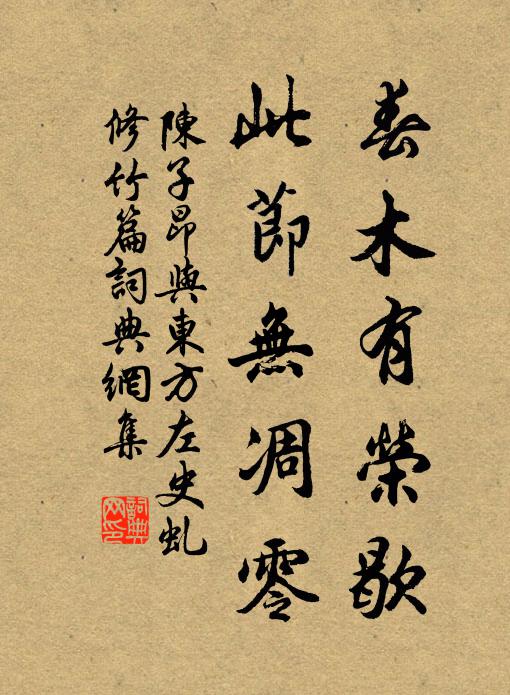 春木有榮歇
此節無凋零
陳子昂與東方左史虬
修竹篇詞典網集
詞典网印